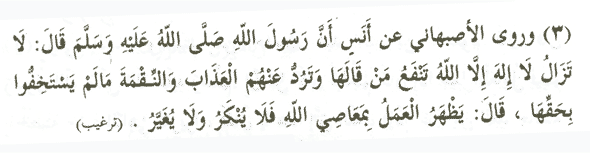 (٣) وروى الأصبهاني عن أَنَسٍ أَنَّ رَسُولَ اللّهِ صَلَّى اللّهُ عَلَيْهِ وَسَلَّمَ قَالَ: لَا
تَزَالُ لَا إِلهَ إِلَّا اللّهُ تَنْفَعُ مَنْ قَالَهَا وَتَرُدُّ عَنْهُمُ الْعَذَابَ وَالنِّقْمَةَ مَالَمْ يَسْتَخِفُّوا
بِحَقِّهَا ، قَالَ: يَظْهَرُ الْعَمَلُ بِمَعَاصِي اللّهِ فَلَا يُنْكَرُ وَلَا يُغَيَّرُ . (ترغيب)